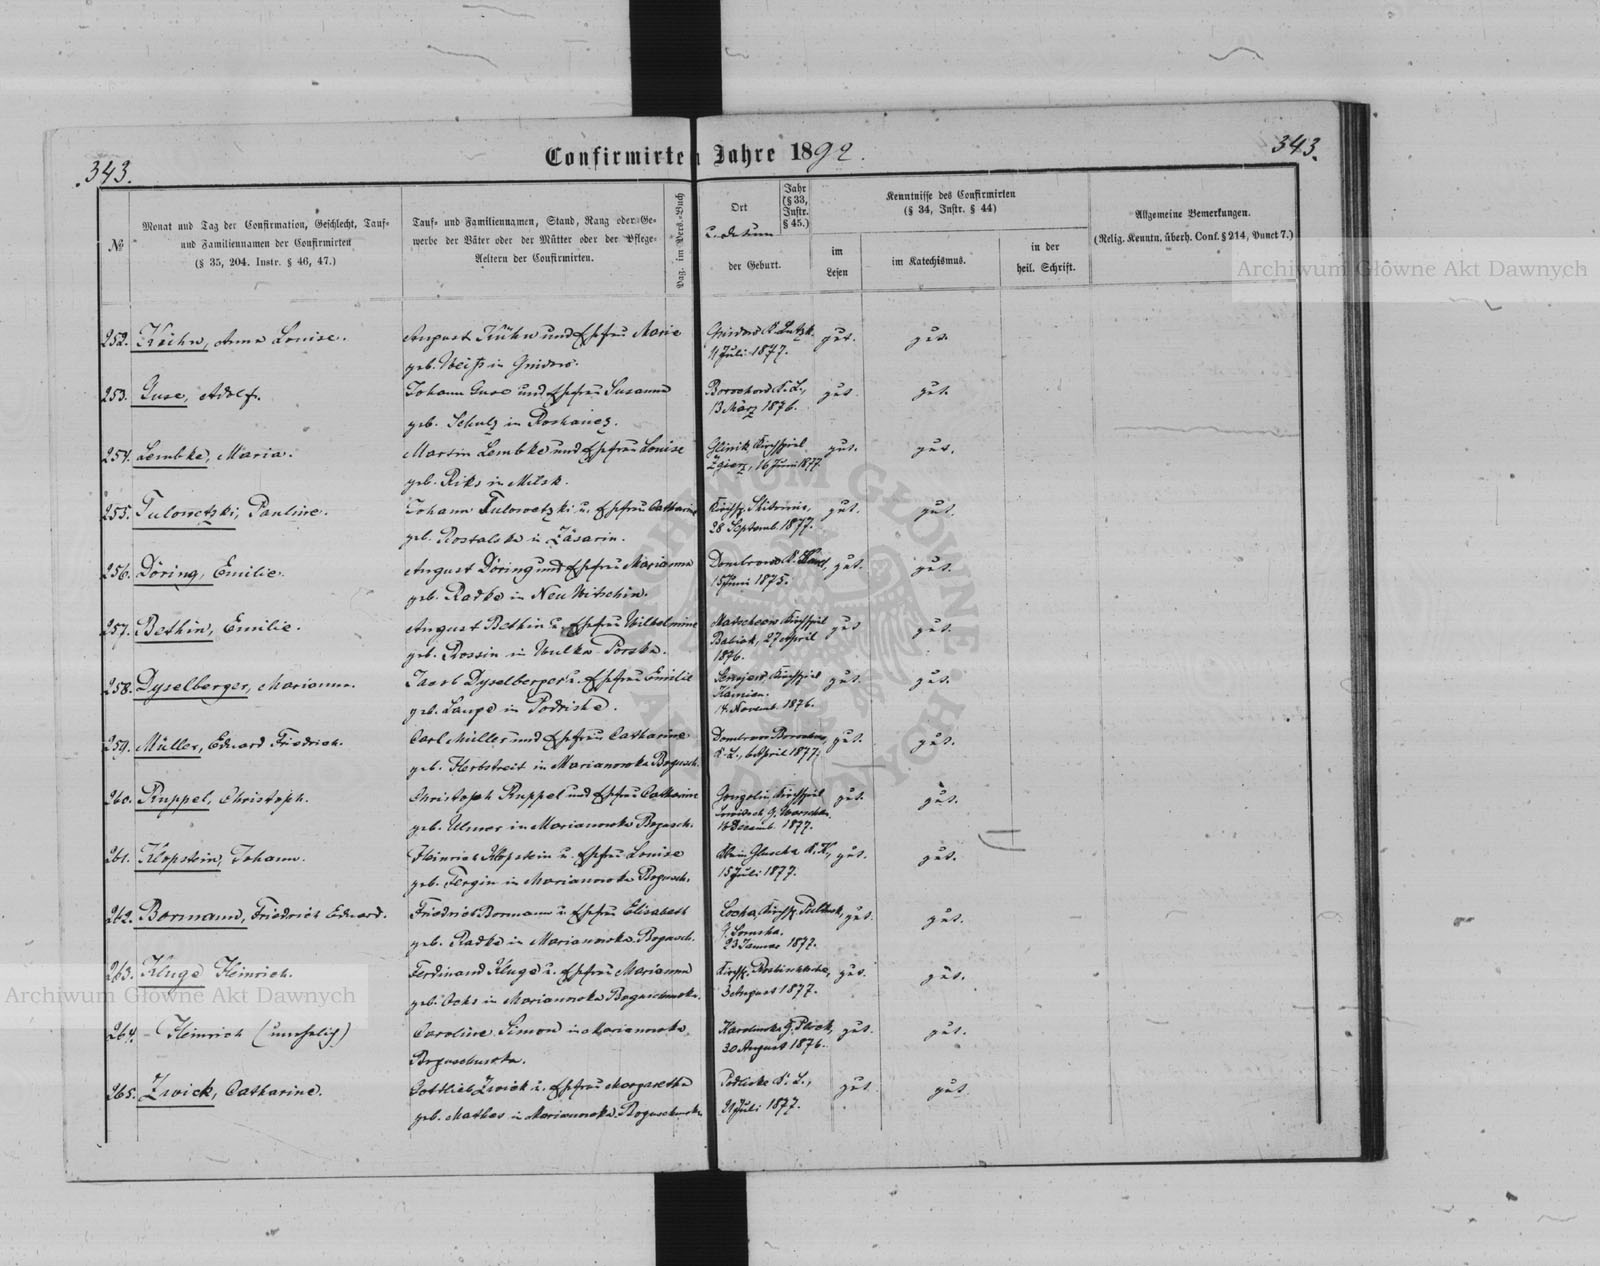 343.
Confirmirten Jahre 1892.
343.
№
Monat und Tag der Confirmation, Geschlecht, Tauf-
und Familiennamen der Confirmirten
(§ 35, 204. Instr. § 46, 47.)
Tauf- und Familiennamen, Stand, Rang oder Ge-
werbe der Väter oder der Mütter oder der Pflege-
Aeltern der Confirmirten.
Pag. im Pers.-Buch
Ort
u. datum
der Geburt.
Jahr
(§ 33,
Instr.
§ 45.)
Kenntnisse des Confirmirten
(§ 34, Instr. § 44)
im
Lesen
im Katechismus.
in der
heil. Schrift.
Allgemeine Bemerkungen.
(Relig. Kenntn. überh. Conf. § 214, Punct 7.)
Archiwum Główne Akt Dawnych
252. Kühn, Anna Louise.
August Kühn und Ehefrau Marie
geb. Weiß in
11 Juli 1877.
gut. gut.
253. Guse, Adolf.
Johann Guse und Ehefrau Susanna
geb. Schulz in
13 März 1876.
gut gut.
254. Lembke, Maria.
Martin Lembke und Ehefrau Louise
geb. Riks in Milsk.
Glinik Kirchspiel
Zgierz, 16 Juni 1877.
gut. gut.
255. Tulowetzki, Pauline.
Johann Tulowetzki u. Ehefrau Catharine
geb. Rostalska in
28 Septemb. 1877.
gut. gut.
256. Döring, Emilie.
August Döring und Ehefrau Marianna
geb. Radke in Neu Witschin.
15 Juni 1875.
gut. gut.
257. Bethin, Emilie.
August Bethin u. Ehefrau Wilhelmine
geb. Rossin in Wulka Porska.
Kirchspiel
27 April
1876.
gut gut.
258. Dyselberger, Marianna.
Jacob Dyselberger u. Ehefrau Emilie
geb. Laupe in
Kirchspiel
Kamien.
Novemb. 1876.
gut. gut.
259. Müller, Eduard Friedrich.
Carl Müller und Ehefrau Catharine
geb. Herbstreit in Marianowka Bogusch.
K. L., 6 April 1877.
gut. gut.
260. Ruppel, Christoph.
Christoph Ruppel und Ehefrau Catharine
geb. Ulmer in Marianowka Bogusch.
Kirchspiel
G. Warschau,
16 Decemb. 1877.
gut. gut.
261. Klopstein, Johann.
Heinrich Klopstein u. Ehefrau Louise
geb. Fergin in Marianowka Bogusch.
15 Juli 1877.
gut. gut.
262. Bormann, Friedrich Eduard.
Friedrich Bormann u. Ehefrau Elisabeth
geb. Radke in Marianowka Bogusch.
Kirchsp. Pultusk,
G. Lomsha.
23 Januar 1877.
gut. gut.
263. Kluge Heinrich.
Ferdinand Kluge u. Ehefrau Marianna
geb. Ochs in Marianowka Boguschewska.
3 August 1877.
gut. gut.
Archiwum Główne Akt Dawnych
264. - Heinrich (unehelich)
Caroline Simon in Marianowka
Boguschewska.
G. Plock,
30 August 1876.
gut. gut.
265. Zwick, Catharine.
Gottlieb Zwick u. Ehefrau Margaretha
geb. Mathes in Marianowka Boguschewska
K. L.,
21 Juli 1877.
gut. gut.